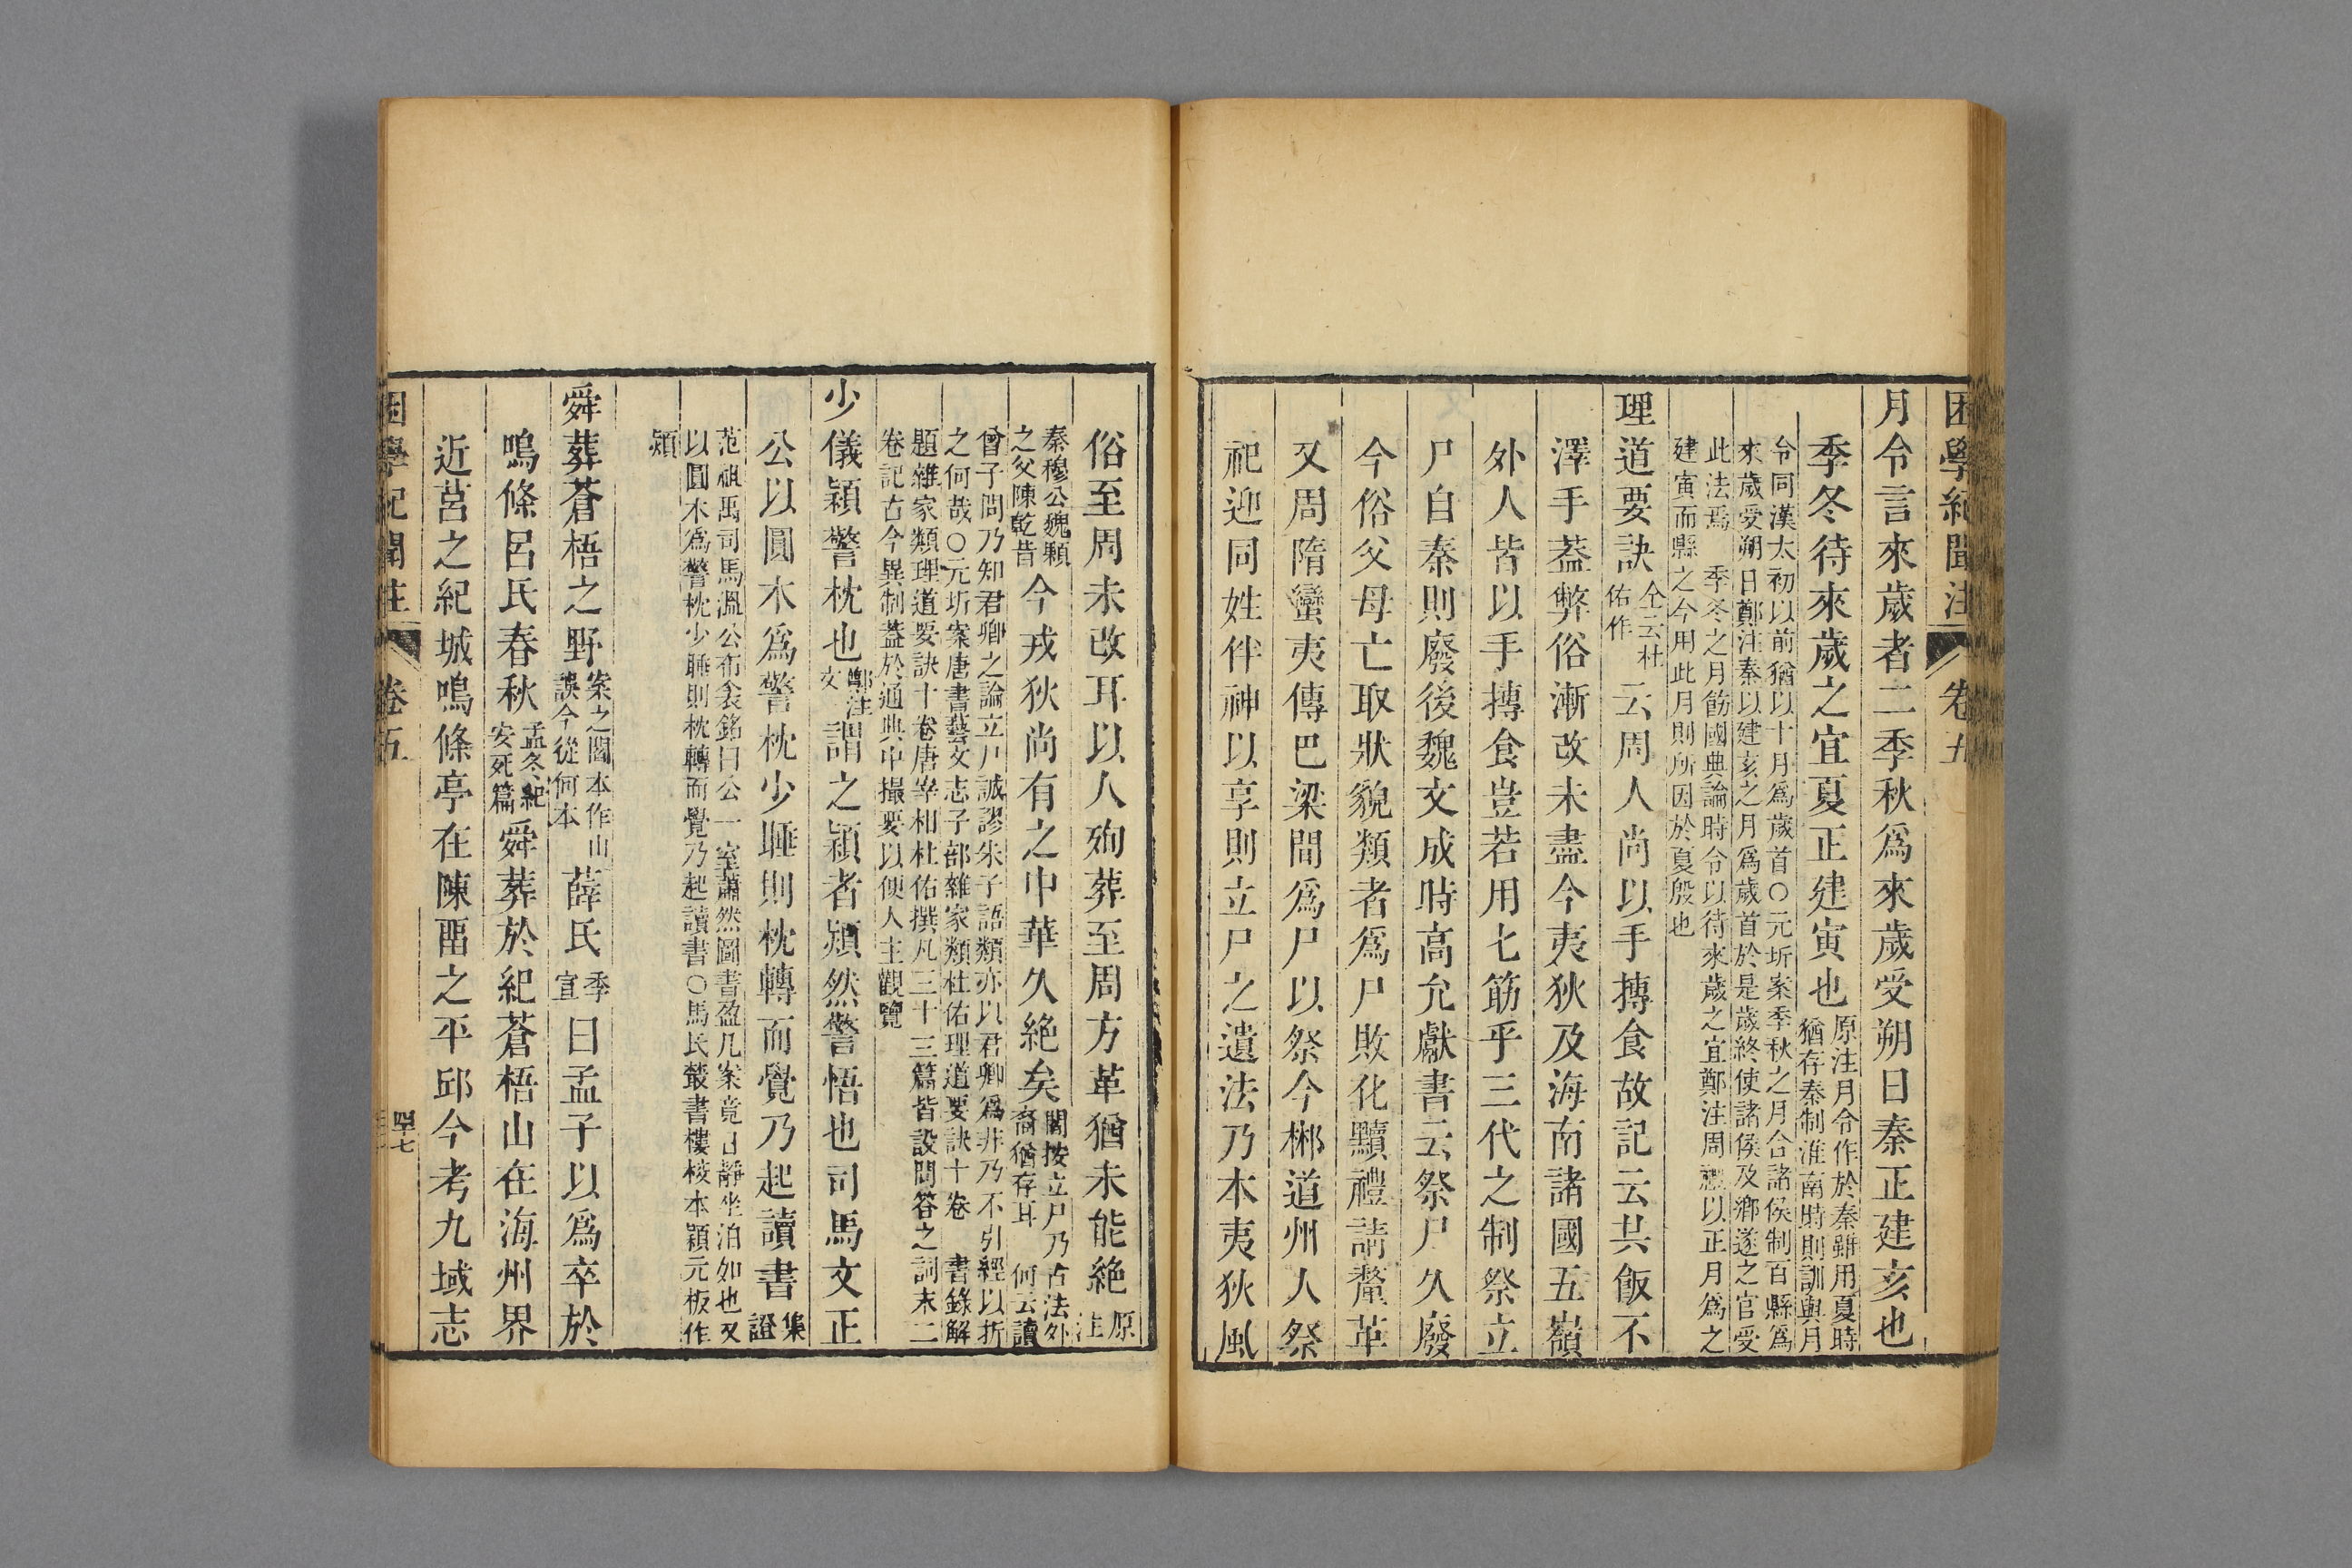 困學紀聞注 卷五
月令言來歲者二季秋爲來歲受朔日秦正建亥也
季冬待來歲之宜夏正建寅也原注月令作於秦雖用夏時
猶存秦制淮南時則訓與月
令同漢太初以前猶以十月爲歲首○元圻案季秋之月合諸侯制百縣爲
來歲受朔日鄭注秦以建亥之月爲歲首於是歲終使諸侯及鄉遂之官受
此法焉 季冬之月飭國典論時令以待來歲之宜鄭注周禮以正月爲之
建寅而縣之今用此月則所因於夏殷也
理道要訣仝云杜
佑作云周人尚以手摶食故記云共飯不
澤手蓋弊俗漸改未盡今夷狄及海南諸國五嶺
外人皆以手摶食豈若用七筯乎三代之制祭立
尸自秦則廢後魏文成時高允獻書云祭尸久廢
今俗父母亡取狀貌類者爲尸敗化黷禮請釐革
又周隋蠻夷傳巴梁間爲尸以祭今郴道州人祭
祀迎同姓伴神以享則立尸之遺法乃本夷狄風
俗至周未改耳以人殉葬至周方革猶未能絶原
注
秦穆公魏顆
之父陳乾昔今戎狄尚有之中華久絶矣閻按立尸乃古法外
裔猶存耳 何云讀
曾子問乃知君卿之論立尸誠謬朱子語類亦以君卿爲非乃不引經以折
之何哉○元圻案唐書藝文志子部雜家類杜佑理道要訣十卷 書錄解
題雜家類理道要訣十卷唐宰相杜佑撰凡三十三篇皆設問答之詞末二
卷記古今異制蓋於通典中撮要以便人主觀覽
少儀頴警枕也鄭注
文謂之頴者熲然警悟也司馬文正
公以圓木爲警枕少睡則枕轉而覺乃起讀書集
證
范祖禹司馬溫公布衾銘曰公一室蕭然圖書盈几案竟日靜坐泊如也又
以圓木爲警枕少睡則枕轉而覺乃起讀書○馬氏叢書樓校本頴元板作
熲
舜葬蒼梧之野案之閻本作山
誤今從何本薛氏季
宣曰孟子以爲卒於
鳴條呂氏春秋孟冬紀
安死篇舜葬於紀蒼梧山在海州界
近莒之紀城鳴條亭在陳留之平邱今考九域志
困學紀聞注 卷五 四十七